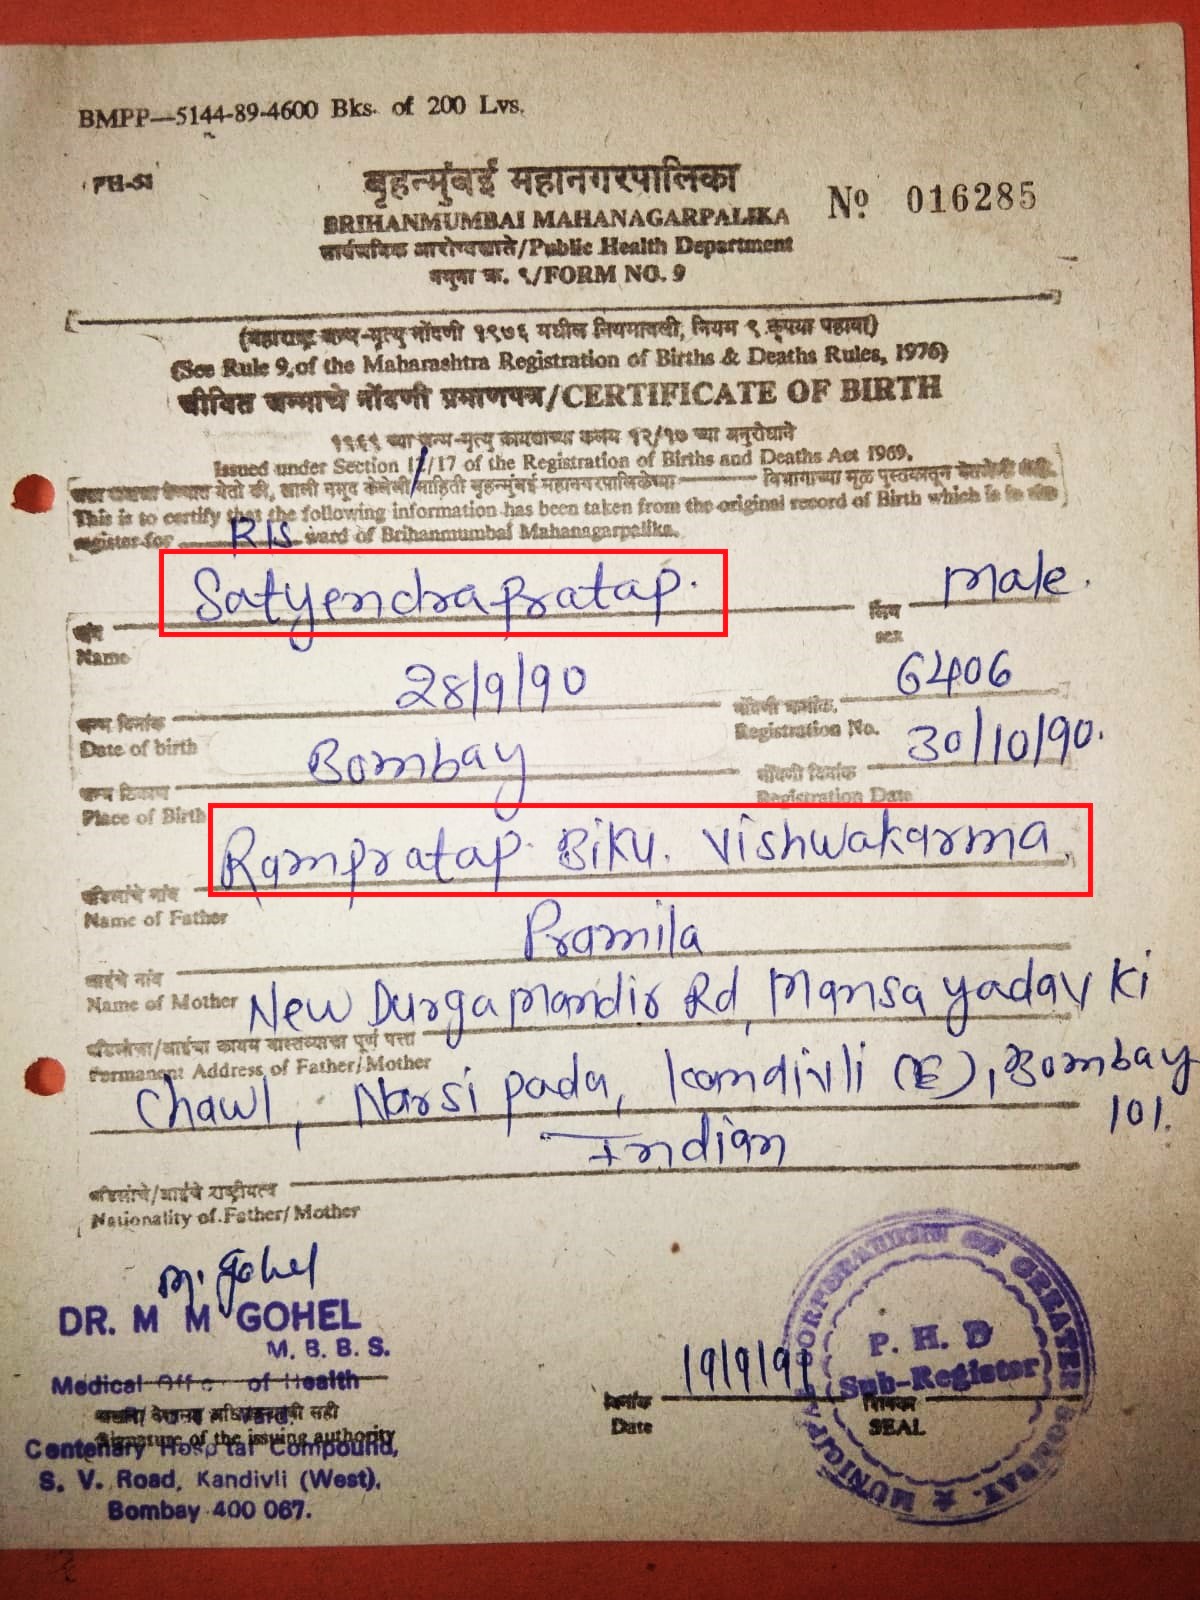 BMPP—5144-89-4600 Bks. of 200 Lvs.
PH-51
बृहन्मुंबई महानगरपालिका
BRIHANMUMBAI MAHANAGARPALIKA
№ 016285
सार्वजनिक आरोग्यखाते/Public Health Department
नमुना क्र. ९/FORM NO. 9
(महाराष्ट्र जन्म-मृत्यु नोंदणी १९७६ मधील नियमावली, नियम ९ कृपया पहावा)
(See Rule 9, of the Maharashtra Registration of Births & Deaths Rules, 1976)
जीवित जन्माचे नोंदणी प्रमाणपत्र/CERTIFICATE OF BIRTH
१९६९ च्या जन्म-मृत्यु कायद्याच्या कलम १२/१७ च्या अनुरोधाने
Issued under Section 12/17 of the Registration of Births and Deaths Act 1969.
येतो की, खाली नमूद केलेली माहिती बृहन्मुंबई महानगरपालिकेच्या — विभागाच्या मूळ पुस्तकातून
This is to certify that the following information has been taken from the original record of Birth which is in the
register for R/S ward of Brihanmumbai Mahanagarpalika.
Satyendra Pratap.
Male.
नांव
Name
लिंग
sex
28/9/90
6406
जन्म दिनांक
Date of birth
नोंदणी क्रमांक.
Registration No.
Bombay
30/10/90.
जन्म ठिकाण
Place of Birth
नोंदणी दिनांक
Registration Date
Rampratap Biku. Vishwakarma.
वडिलांचे नांव
Name of Father
Pramila
आईचे नांव
Name of Mother
New Durga Mandir Rd, Mansa yadav Ki
वडिलांचा/आईचा कायम वास्तव्याचा पूर्ण पत्ता
Permanent Address of Father/Mother
Chawl, Narsi pada, Kandivli (E), Bombay
101.
Indian
वडिलांचे/आईचे राष्ट्रीयत्व
Nationality of Father/Mother
M. Gohel
DR. M M GOHEL
M. B. B. S.
Medical Officer of Health
Signature of the issuing authority
Centenary Hospital Compound,
S. V. Road, Kandivli (West),
Bombay 400 067.
दिनांक
Date
19/9/9
SEAL
MUNICIPAL CORPORATION OF GREATER BOMBAY.
P. H. D
Sub-Register